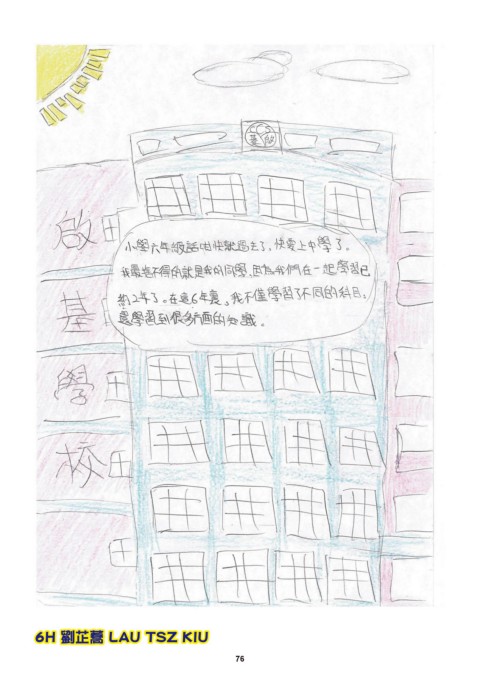 啟
基
學
校
小學六年級話咁快就過去了，快要上中學了。
我最捨不得的就是我的同學，因為我們在一起學習已
約2年了。在這6年裏，我不僅學習了不同的科目，
還學習到很多方面的知識。
6H 劉芷蕎 LAU TSZ KIU
76